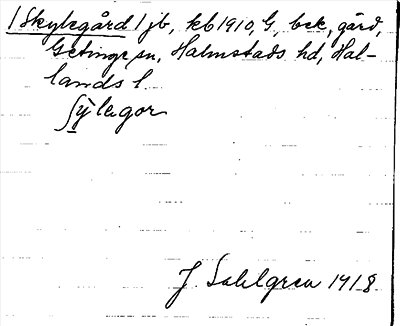 1 Skylegård 1 jb, kb 1910, G, bek, gård,
Getinge sn, Halmstads hd, Hal-
lands l.
ʃỳlagor
J. Sahlgren 1918